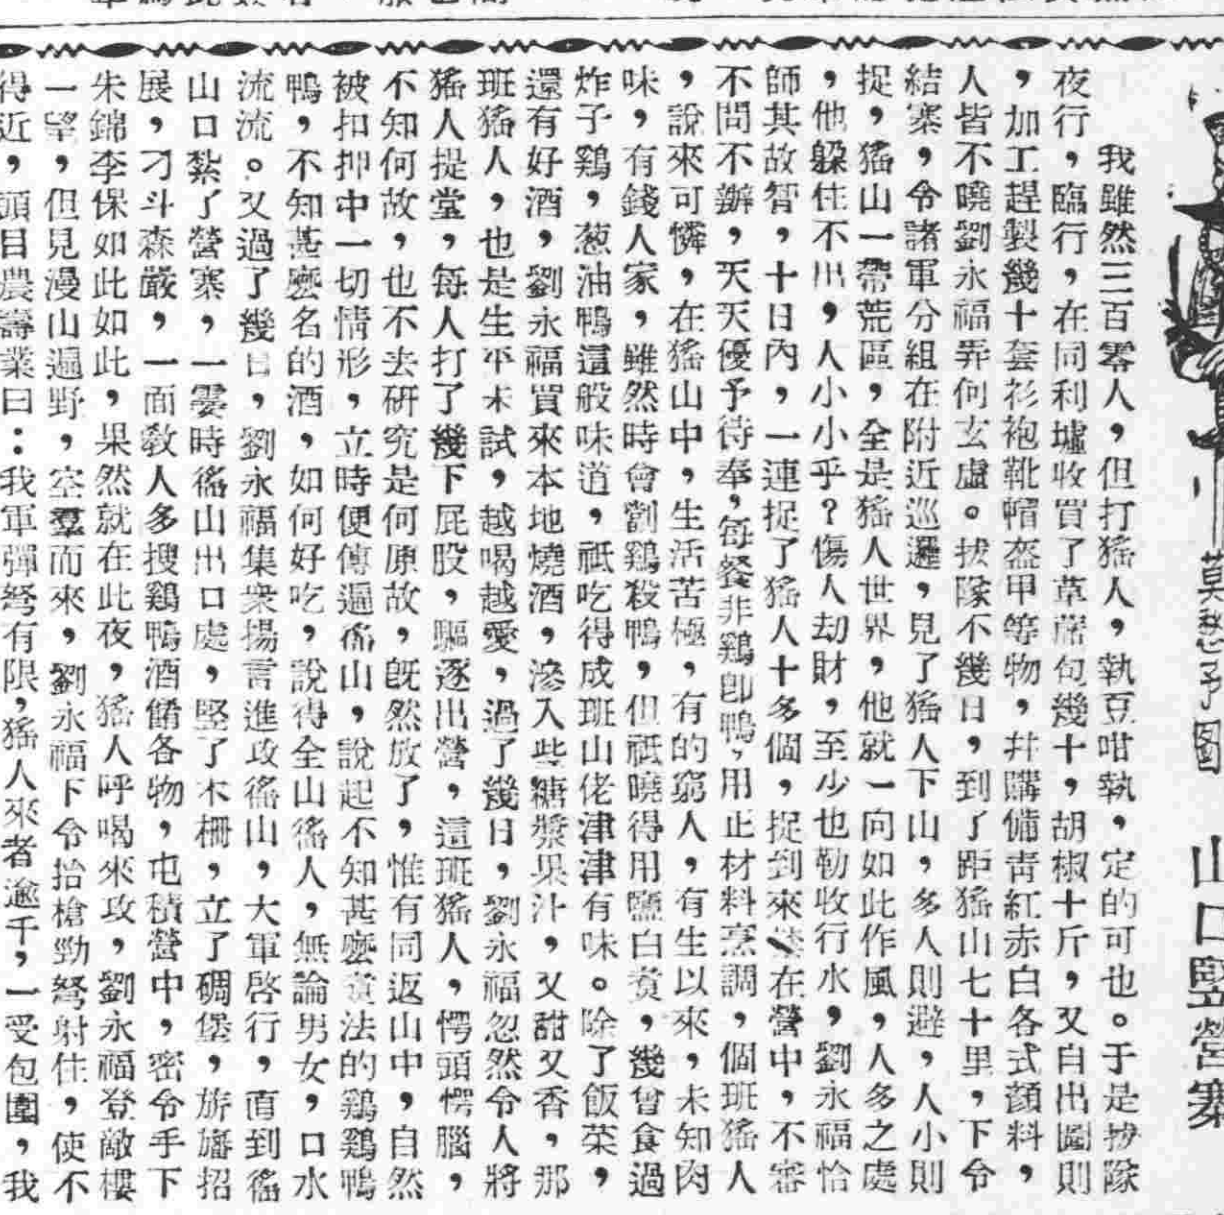 莫愁予图
山口豎營寨
我雖然三百零人，但打猺人，執豆咁執，定的可也。于是拔隊
夜行，臨行，在同利墟收買了草蓆包幾十，胡椒十斤，又自出圖則
，加工趕製幾十套衫袍靴帽盔甲等物，幷購備靑紅赤白各式顏料，
人皆不曉劉永福弄何玄虛。拔隊不幾日，到了距猺山七十里，下令
結寨，令諸軍分組在附近巡邏，見了猺人下山，多人則避，人小則
捉，猺山一帶荒區，全是猺人世界，他就一向如此作風，人多之處
，他躲住不出，人小小乎？傷人劫財，至少也勒收行水，劉永福恰
師其故智，十日內，一連捉了猺人十多個，捉到來 在營中，不審
不問不辦，天天優予待奉，每餐非鷄卽鴨，用正材料烹調，個班猺人
，說來可憐，在猺山中，生活苦極，有的窮人，有生以來，未知肉
味，有錢人家，雖然時會劏鷄殺鴨，但祇曉得用鹽白煑，幾曾食過
炸子鷄，葱油鴨這般味道，祇吃得成班山佬津津有味。除了飯菜，
還有好酒，劉永福買來本地燒酒，滲入些糖漿果汁，又甜又香，那
班猺人，也是生平未試，越喝越愛，過了幾日，劉永福忽然令人將
猺人提堂，每人打了幾下屁股，驅逐出營，這班猺人，愕頭愕腦，
不知何故，也不去研究是何原故，旣然放了，惟有同返山中，自然
被扣押中一切情形，立時便傳遍徭山，說起不知甚麽煑法的鷄鷄鴨
鴨，不知甚麽名的酒，如何好吃，說得全山徭人，無論男女，口水
流流。又過了幾日，劉永福集衆揚言進攻徭山，大軍啓行，直到徭
山口紮了營寨，一霎時徭山出口處，堅了木柵，立了碉堡，旂旛招
展，刁斗森嚴，一面敎人多搜鷄鴨酒餚各物，屯積營中，密令手下
朱錦李保如此如此，果然就在此夜，猺人呼喝來攻，劉永福登敵樓
一望，但見漫山遍野，空羣而來，劉永福下令抬槍勁弩射住，使不
得近，頭目農壽業曰：我軍彈弩有限，猺人來者逾千，一受包圍，我